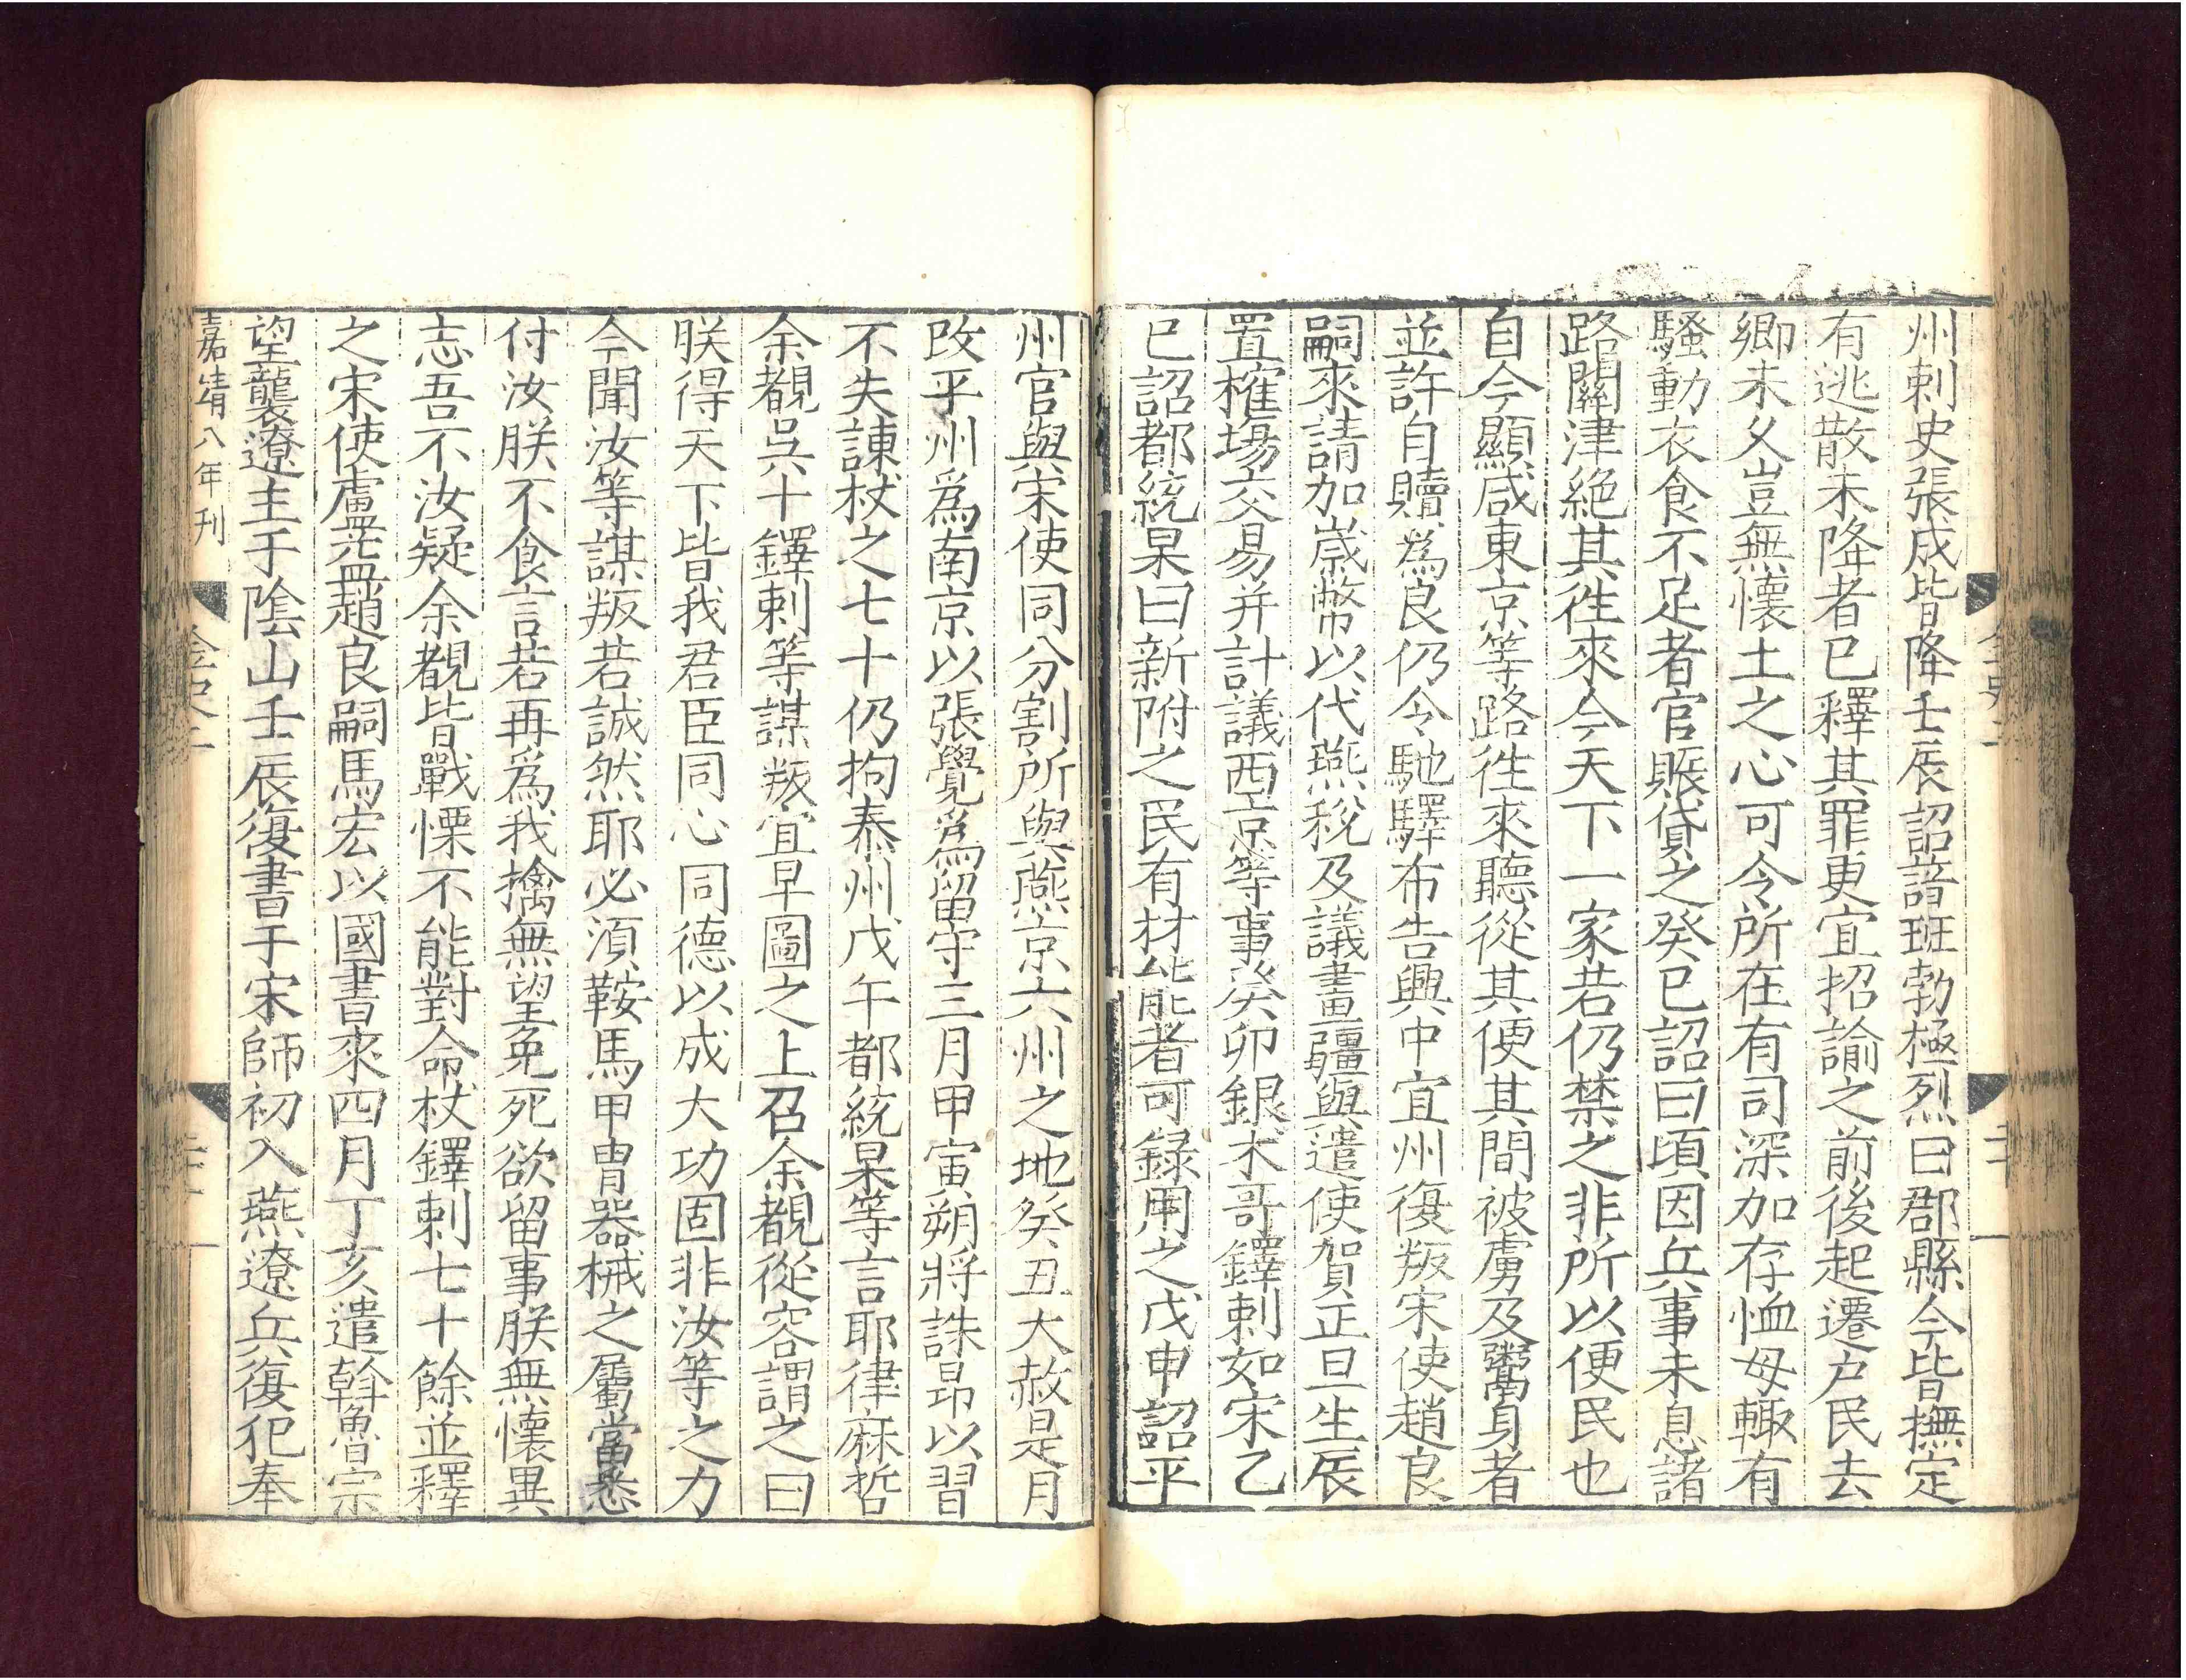 州刺史張成皆降壬辰詔諳班勃極烈曰郡縣今皆撫定
有逃散未降者已釋其罪更宜招諭之前後起遷户民去
郷未久豈無懷土之心可令所在有司深加存恤毋輙有
騷動衣食不足者官賑貸之癸巳詔曰頃因兵事未息諸
路關津絶其徃來今天下一家若仍禁之非所以便民也
自今顯咸東京等路徃來聽從其便其間被虜及鬻身者
並許自贖爲良仍令馳驛布告興中宜州復叛宋使趙良
嗣來請加嵗幣以代燕稅及議畫疆與遣使賀正旦生辰
置榷場交易并計議西京等事癸卯銀术哥鐸剌如宋乙
巳詔都統杲曰新附之民有材能者可録用之戊申詔平
州官與宋使同分割所與燕京六州之地癸丑大赦是月
改平州爲南京以張覺爲留守三月甲寅朔將誅昂以習
不失諫杖之七十仍拘泰州戊午都統杲等言耶律麻哲
余覩吳十鐸剌等謀叛宜早圖之上召余覩從容謂之曰
朕得天下皆我君臣同心同德以成大功固非汝等之力
今聞汝等謀叛若誠然耶必須鞍馬甲冑器械之屬當悉
付汝朕不食言若再爲我擒無望免死欲留事朕無懷異
志吾不汝疑余覩皆戰慄不能對命杖鐸剌七十餘並釋
之宋使盧益趙良嗣馬宏以國書來四月丁亥遣斡魯宗
望襲遼主于陰山壬辰復書于宋師初入燕遼兵復犯奉
嘉靖八年刊
金史二